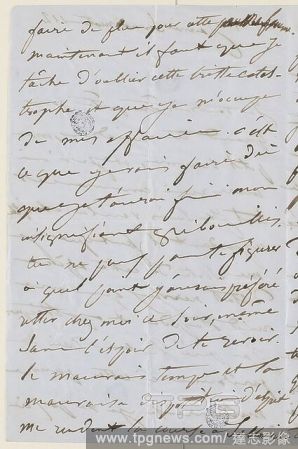 faire de plus pour cette
maintenant il faut que je
tâche d'oublier cette triste catas-
trophe et que je m'occupe
de mes affaires. c'est
ce que je vais faire dès
que j'aurai fini mon
insignifiant gribouillis.
tu ne peux pas te figurer
à quel point j'aurais préféré
rester chez moi ce soir, même
sans l'espoir de te revoir.
le mauvais temps et la
mauvaise disposition d'esprit
me rendent la
www.tpgnews.com/ 達志影像